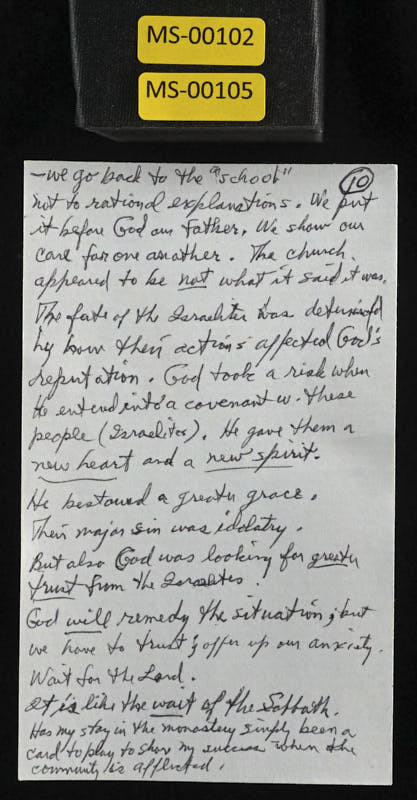 MS-00102
MS-00105
10
—we go back to the "school"
not to rational explanations. We put
it before God our Father. We show our
care for one another. The church
appeared to be not what it said it was.
The fate of the Israelites was determined
by how their actions affected God's
reputation. God took a risk when
He entered into a covenant w. these
people (Israelites). He gave them a
new heart and a new spirit.
He bestowed a greater grace.
Their major sin was idolatry.
But also God was looking for greater
trust from the Israelites.
God will remedy the situation; but
we have to trust & offer up our anxiety.
Wait for the Lord.
It is like the wait of the Sabbath.
Has my stay in the monastery simply been a
card to play to show my success when the
community is afflicted.